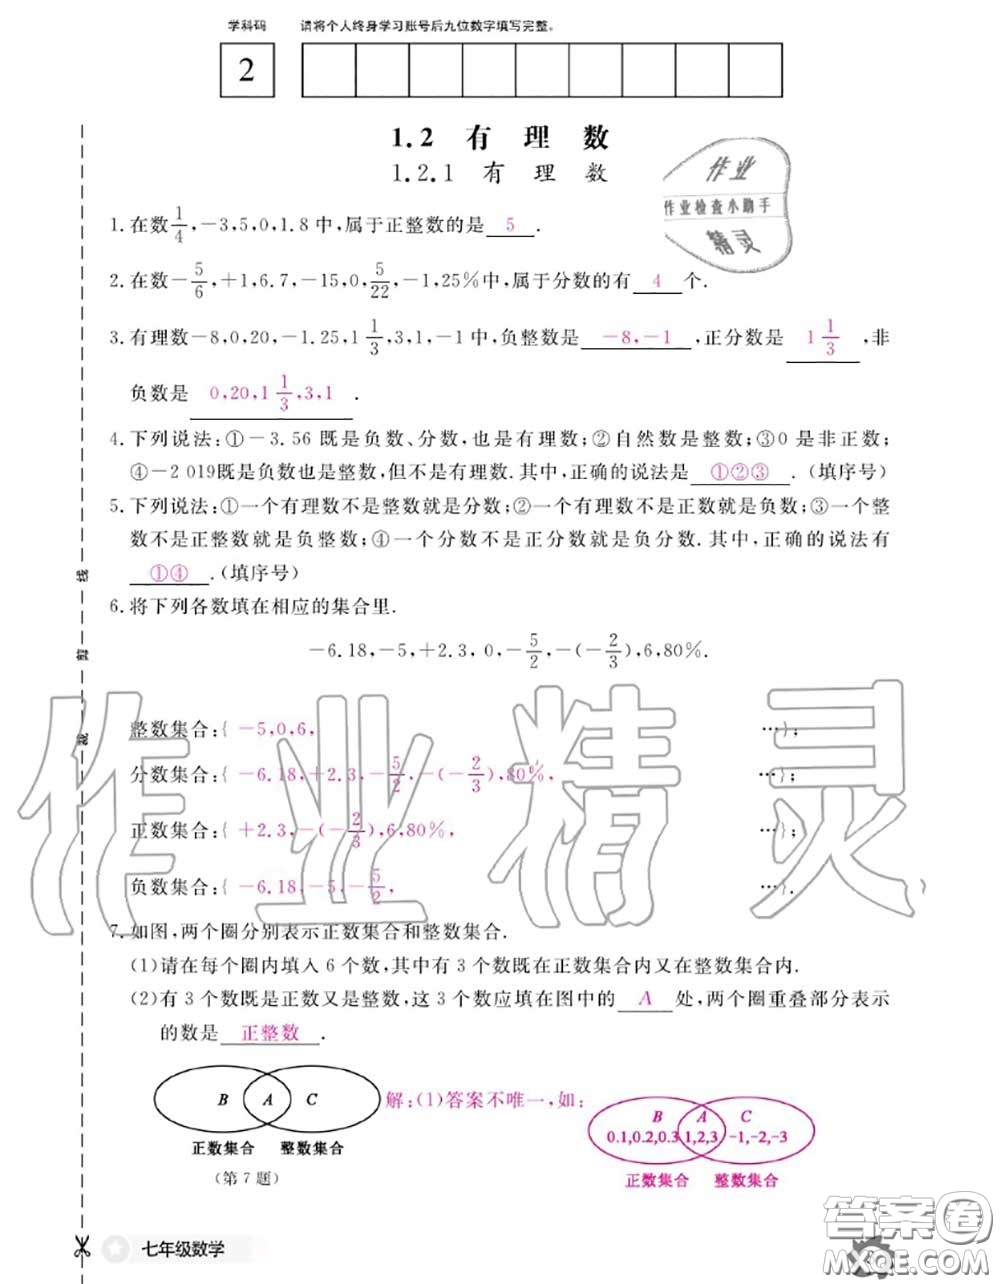 学科码 请将个人终身学习账号后九位数字填写完整。
2
1.2 有理数
1.2.1 有理数
作业
作业检查小助手
精灵
1.在数1/4,-3,5,0,1.8中,属于正整数的是 5 .
2.在数-5/6,+1,6.7,-15,0,5/22,-1,25%中,属于分数的有 4 个.
3.有理数-8,0,20,-1.25,1 1/3,3,1,-1中,负整数是 -8,-1 ,正分数是 1 1/3 ,非
负数是 0,20,1 1/3,3,1 .
4.下列说法:①-3.56既是负数、分数,也是有理数;②自然数是整数;③0是非正数;
④-2 019既是负数也是整数,但不是有理数.其中,正确的说法是 ①②③ .(填序号)
5.下列说法:①一个有理数不是整数就是分数;②一个有理数不是正数就是负数;③一个整
数不是正整数就是负整数;④一个分数不是正分数就是负分数.其中,正确的说法有
①④ .(填序号)
6.将下列各数填在相应的集合里.
-6.18,-5,+2.3,0,-5/2,-(-2/3),6,80%.
整数集合:{ -5,0,6, …};
分数集合:{ -6.18,+2.3,-5/2,-(-2/3),80%, …};
正数集合:{ +2.3,-(-2/3),6,80%, …};
负数集合:{ -6.18,-5,-5/2, …}.
7.如图,两个圈分别表示正数集合和整数集合.
(1)请在每个圈内填入6个数,其中有3个数既在正数集合内又在整数集合内.
(2)有3个数既是正数又是整数,这3个数应填在图中的 A 处,两个圈重叠部分表示
的数是 正整数 .
B A C
正数集合 整数集合
(第7题)
解:(1)答案不唯一,如:
B A C
0.1,0.2,0.3 1,2,3 -1,-2,-3
正数集合 整数集合
线
剪
裁
作业精灵
七年级数学
答案卷